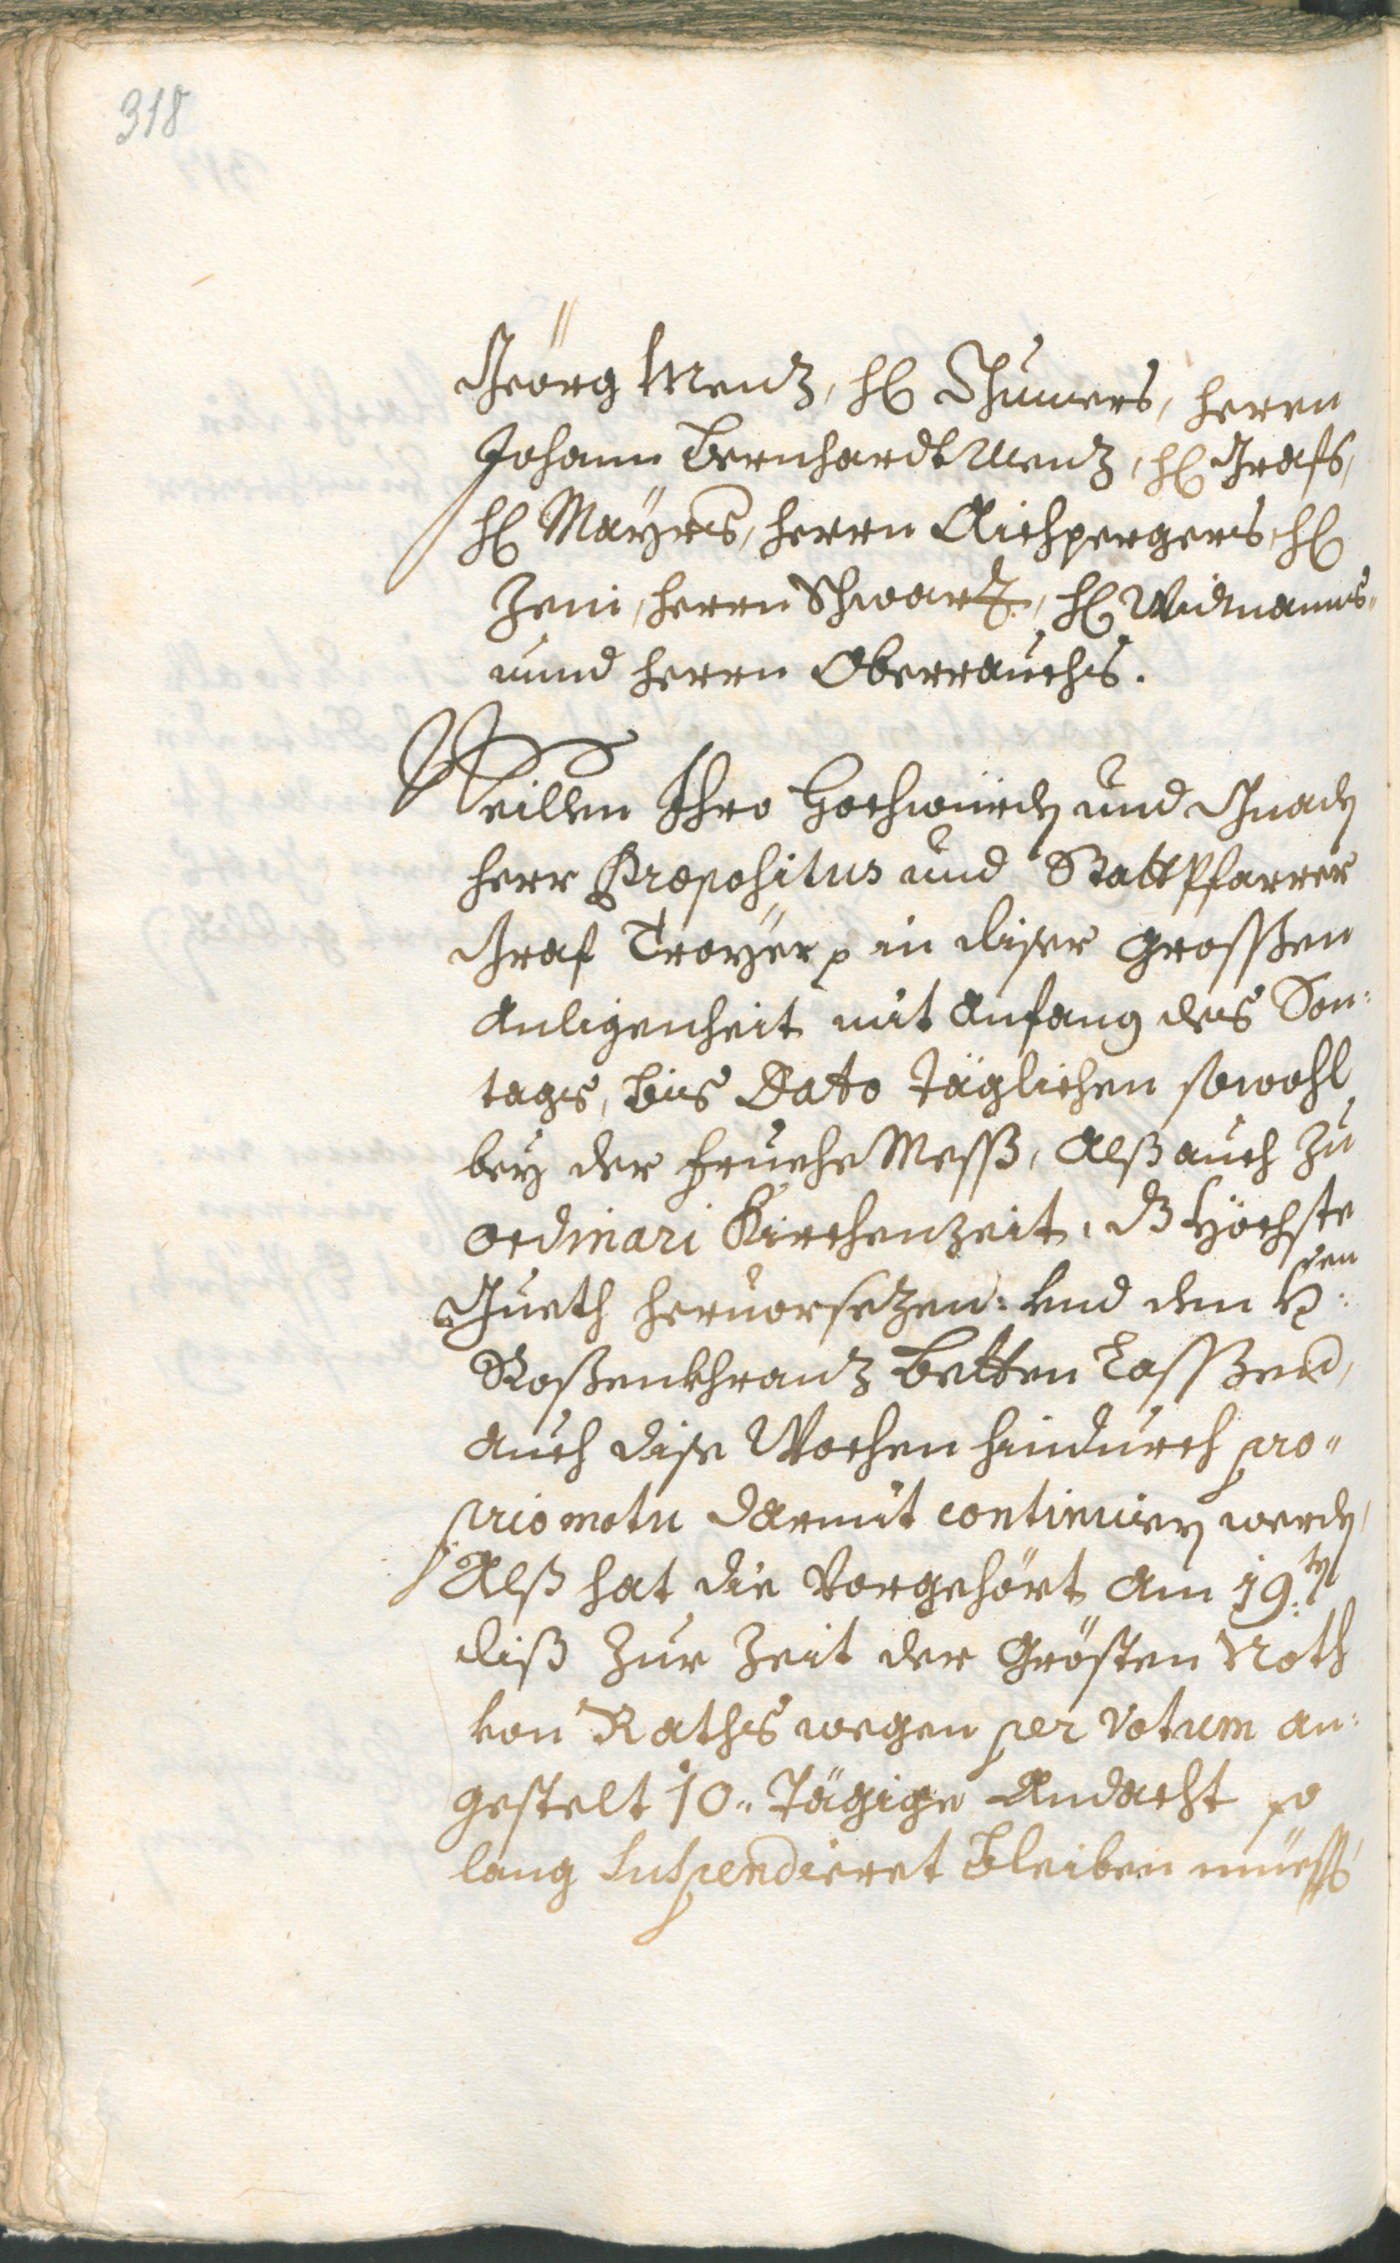 318
Georg Menz, H Thumers, Herrn
Johann Bernhardt Menz, H Grafs,
H Mayrs, Herrn Aichpergers, H
Zeni, Herrn Schwarz, H Widmanns
unnd Herrn Oberrauchs.
Weillen Ihro Hochwürdn und Gnadn
Herr Præpositus und StattPfarrer
Graf Troÿer p in diser grossßen
Anligenheit mit Anfang des Son:
tags, bis Dato täglichen sowohl
bey der fruehe Messß, Alß auch zu
ordinari Kirchenzeit, dz Höchste
Gueth heruorsezen: vnd den H:en
Roßenkhranz betten Lassßen,
auch dise Wochen hindurch pro"
prio motu darmit continuirn werdn,
Alß hat die Vorgehört am 19:tn
diß zur Zeit der Grösten Noth
von Raths wegen per Votum an:
gestelt 10" Tägige Andacht so
lang Suspendieret bleiben müessß